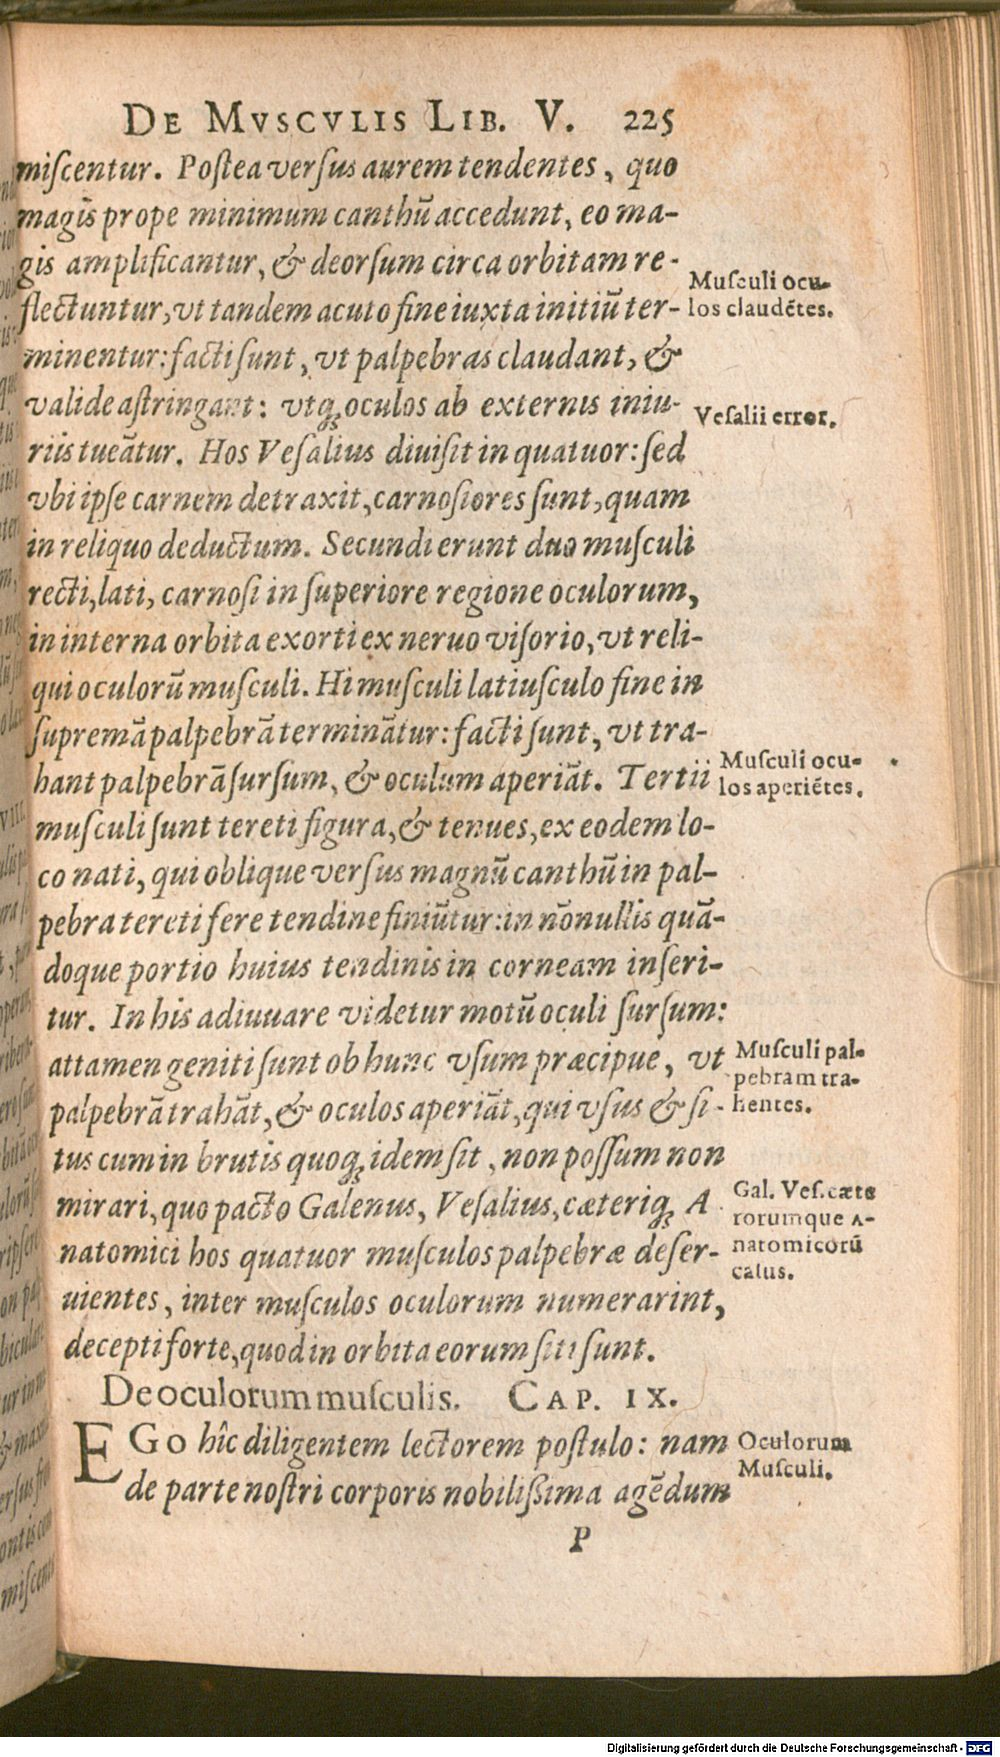 DE MVSCVLIS LIB. V. 225
miſcentur. Poſtea verſus aurem tendentes, quo
magis prope minimum canthũ accedunt, eo ma-
gis amplificantur, & deorſum circa orbitam re-
flectuntur, vt tandem acuto fine iuxta initiũ ter-
minentur: facti ſunt, vt palpebras claudant, &
valide aſtringant: vtq́; oculos ab externis iniu-
riis tueãtur. Hos Veſalius diuiſit in quatuor: ſed
vbi ipſe carnem detraxit, carnoſiores ſunt, quam
in reliquo deductum. Secundi erunt duo muſculi
recti, lati, carnoſi in ſuperiore regione oculorum,
in interna orbita exorti ex neruo viſorio, vt reli-
qui oculorũ muſculi. Hi muſculi latiuſculo fine in
ſupremã palpebrã terminãtur: facti ſunt, vt tra-
hant palpebrã ſurſum, & oculum aperiãt. Tertii
muſculi ſunt tereti figura, & tenues, ex eodem lo-
co nati, qui oblique verſus magnũ canthũ in pal-
pebra tereti fere tendine finiũtur: in nõnullis quã-
doque portio huius tendinis in corneam inſeri-
tur. In his adiuuare videtur motũ oculi ſurſum:
attamen geniti ſunt ob hunc vſum præcipue, vt
palpebrã trahãt, & oculos aperiãt, qui vſus & ſi-
tus cum in brutis quoq; idem ſit, non poſſum non
mirari, quo pacto Galenus, Veſalius, cæteriq; A
natomici hos quatuor muſculos palpebræ deſer-
uientes, inter muſculos oculorum numerarint,
decepti forte, quod in orbita eorum ſiti ſunt.
De oculorum muſculis. CAP. IX.
EGO hîc diligentem lectorem poſtulo: nam
de parte noſtri corporis nobiliſſima agẽdum
P
Muſculi ocu-
los claudẽtes.
Veſalii error.
Muſculi ocu-
los aperiẽtes.
Muſculi pal-
pebram tra-
hentes.
Gal. Veſ. cæte
rorumque A-
natomicorũ
caſus.
Oculorum
Muſculi.
Digitalisierung gefördert durch die Deutsche Forschungsgemeinschaft - DFG